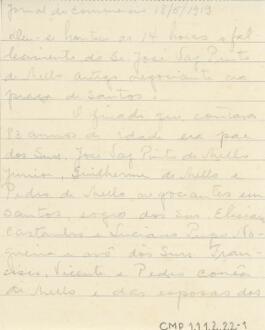 Jornal do Commercio 18/5/1919
deu-se hontem as 14 horas o fal
lecimento do Sr. José Vaz Pinto
de Mello antigo negociante na
praça de Santos.
O finado que contava
83 annos de idade era pae
dos Snrs. José Vaz Pinto de Mello
Junior, Guilherme de Mello e
Pedro de Mello negociantes em
Santos, sogro dos Snrs.
Castanho e Luciano Puga No
gueira e avô dos Snrs. Fran
cisco, Vicente e Pedro
de Mello e das esposas dos
CMP 1.1.1.2.22-1